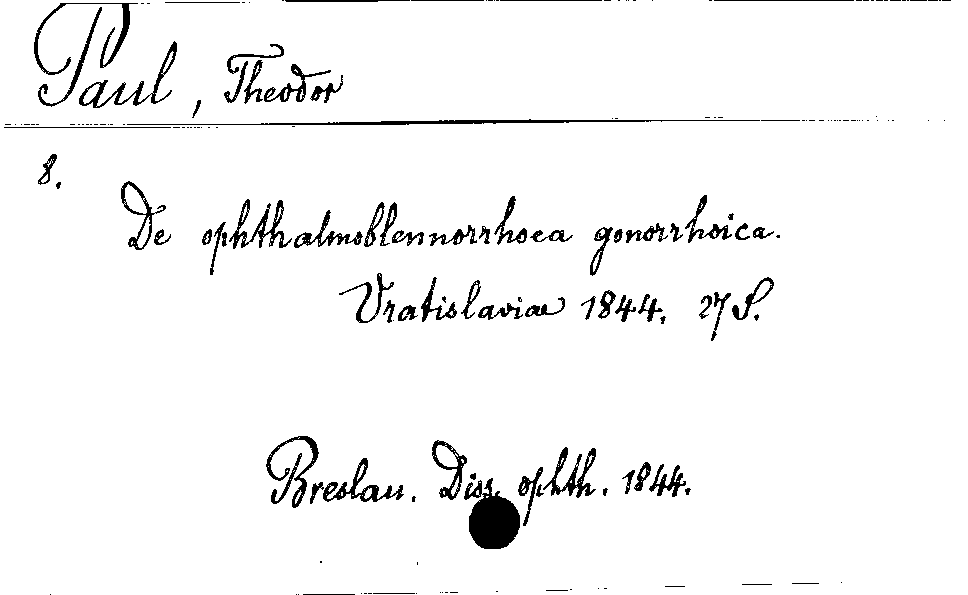 Paul, Theodor
8.
De ophthalmoblennorrhoea gonorrhoica.
Vratislaviae 1844. 27 S.
Breslau. Diss. ophth. 1844.